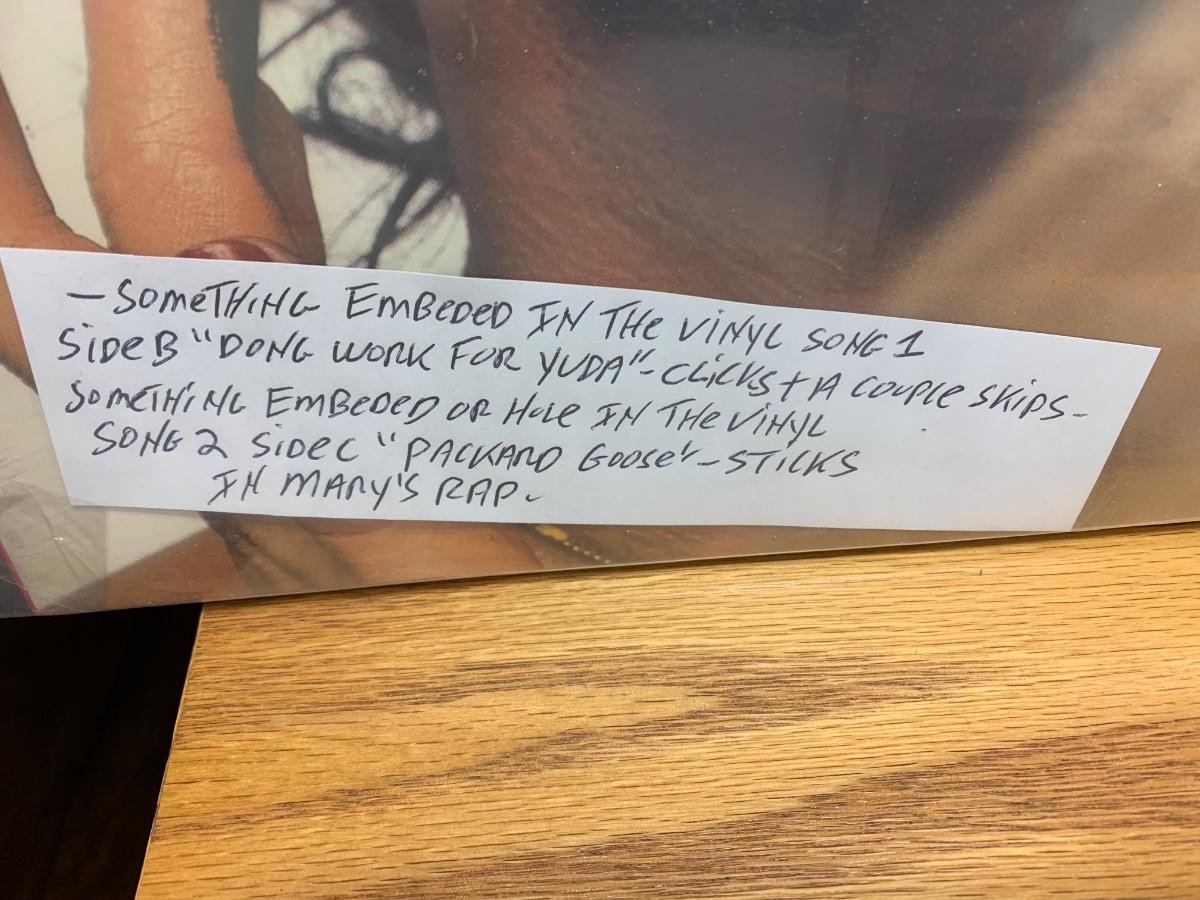 - SOMETHING EMBEDED IN THE VINYL SONG 1
SIDE B "DONG WORK FOR YUDA" - CLICKS + A COUPLE SKIPS -
SOMETHING EMBEDED OR HOLE IN THE VINYL
SONG 2 SIDE C "PACKARD GOOSE" - STICKS
IN MARY'S RAP.